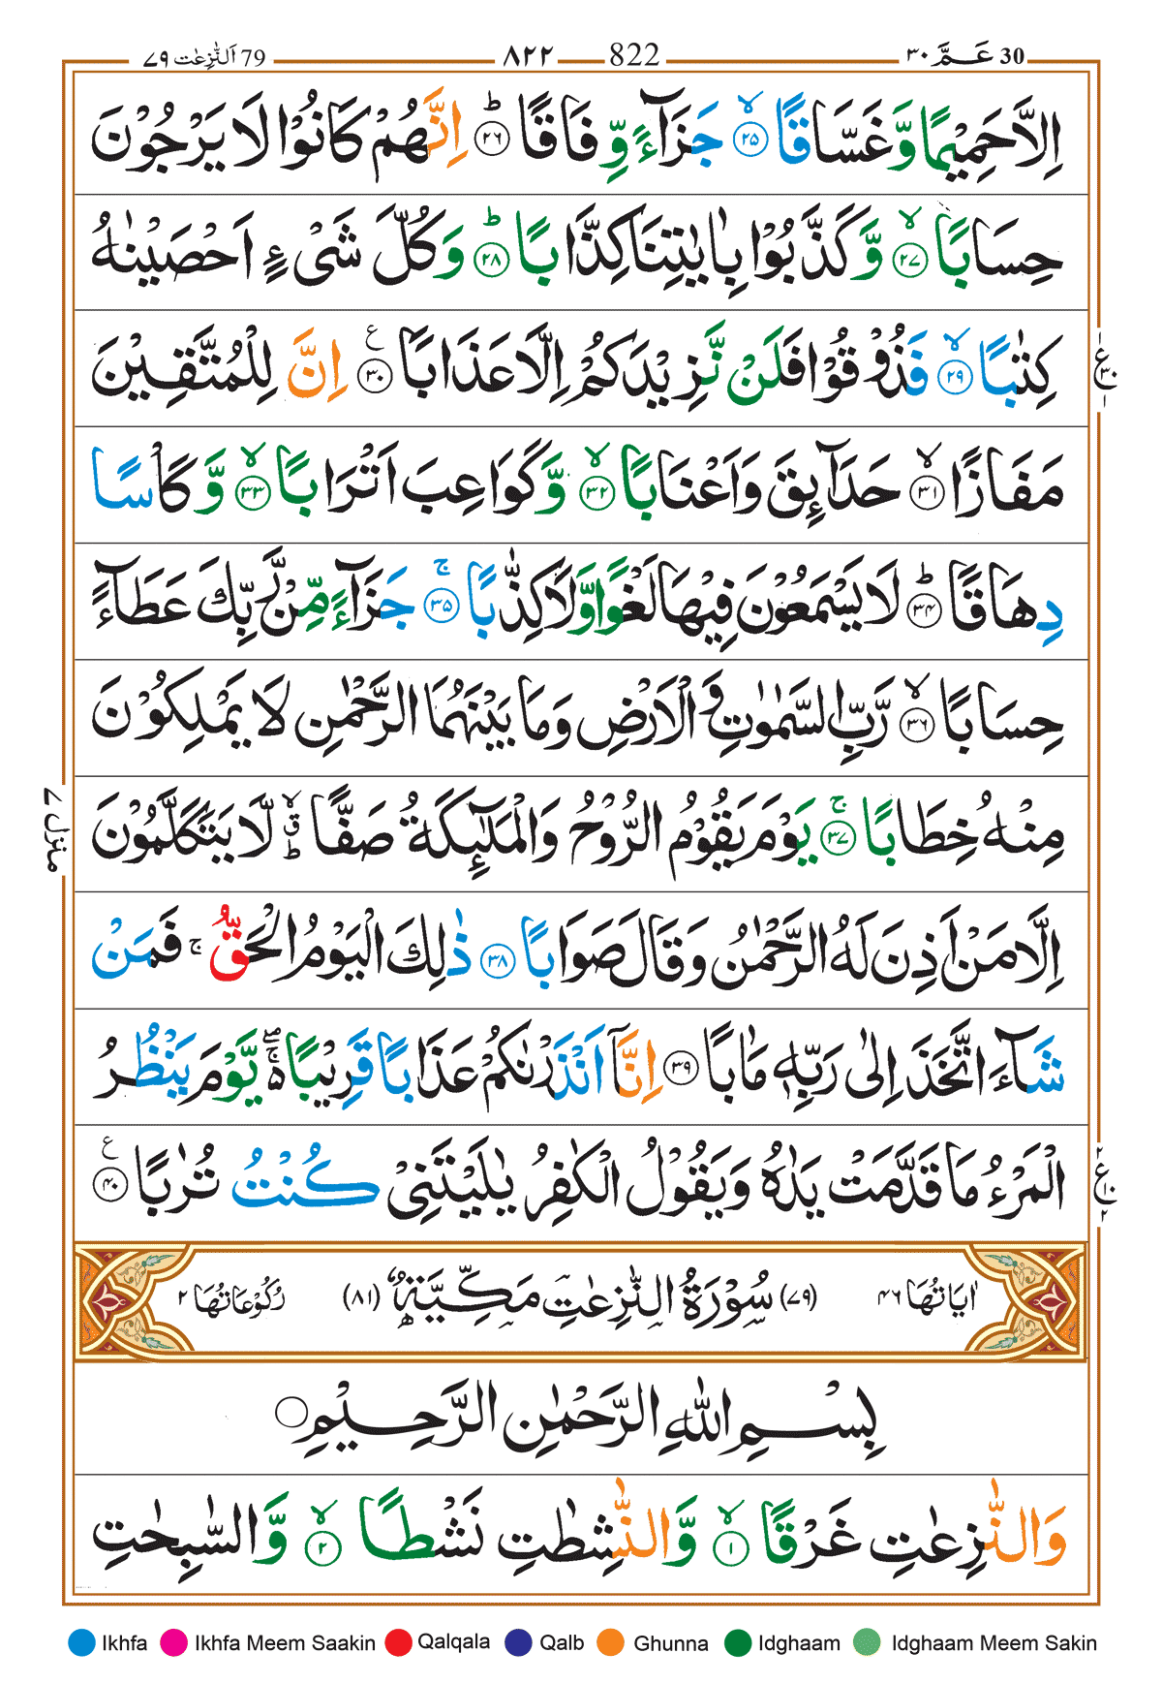 30 عَـمَّ ۳۰ 822 ۸۲۲ 79 اَلنّٰزِعٰت ۷۹
اِلَّا حَمِيْمًا وَّغَسَّاقًا ۙ‏﴿۲۵﴾ جَزَآءً وِّفَاقًا ؕ‏﴿۲۶﴾ اِنَّهُمْ كَانُوْا لَا يَرْجُوْنَ
حِسَابًا ۙ‏﴿۲۷﴾ وَّكَذَّبُوْا بِاٰيٰتِنَا كِذَّابًا ؕ‏﴿۲۸﴾ وَكُلَّ شَىْءٍ اَحْصَيْنٰهُ
كِتٰبًا ۙ‏﴿۲۹﴾ فَذُوْقُوْا فَلَنْ نَّزِيْدَكُمْ اِلَّا عَذَابًا ‏﴿۳۰﴾ ع اِنَّ لِلْمُتَّقِيْنَ
ع ۳۰ ۱
مَفَازًا ۙ‏﴿۳۱﴾ حَدَآئِقَ وَاَعْنَابًا ۙ‏﴿۳۲﴾ وَّكَوَاعِبَ اَتْرَابًا ۙ‏﴿۳۳﴾ وَّكَاْسًا
دِهَاقًا ؕ‏﴿۳۴﴾ لَا يَسْمَعُوْنَ فِيْهَا لَغْوًا وَّلَا كِذّٰبًا ۚ‏﴿۳۵﴾ جَزَآءً مِّنْ رَّبِّكَ عَطَآءً
حِسَابًا ۙ‏﴿۳۶﴾ رَّبِّ السَّمٰوٰتِ وَالْاَرْضِ وَمَا بَيْنَهُمَا الرَّحْمٰنِ لَا يَمْلِكُوْنَ
مِنْهُ خِطَابًا ۚ‏﴿۳۷﴾ يَوْمَ يَقُوْمُ الرُّوْحُ وَالْمَلٰٓئِكَةُ صَفًّا ۙ ق ؕ لَّا يَتَكَلَّمُوْنَ
منزل ۷
اِلَّا مَنْ اَذِنَ لَهُ الرَّحْمٰنُ وَقَالَ صَوَابًا ‏﴿۳۸﴾ ذٰلِكَ الْيَوْمُ الْحَقُّ ۚ فَمَنْ
شَآءَ اتَّخَذَ اِلٰى رَبِّهٖ مَاٰبًا ‏﴿۳۹﴾ اِنَّاۤ اَنْذَرْنٰكُمْ عَذَابًا قَرِيْبًا ۖۚ۬ يَّوْمَ يَنْظُرُ
الْمَرْءُ مَا قَدَّمَتْ يَدٰهُ وَيَقُوْلُ الْكٰفِرُ يٰلَيْتَنِىْ كُنْتُ تُرٰبًا ‏﴿۴۰﴾ ع
۲ ع ۱۰ ۲
اٰيَاتُهَا ۴۶ (۷۹) سُوْرَةُ النّٰزِعٰتِ مَكِّيَّةٌ (۸۱) رُكُوْعَاتُهَا ۲
بِسْمِ اللّٰهِ الرَّحْمٰنِ الرَّحِيْمِ
وَالنّٰزِعٰتِ غَرْقًا ۙ‏﴿۱﴾ وَّالنّٰشِطٰتِ نَشْطًا ۙ‏﴿۲﴾ وَّالسّٰبِحٰتِ
Ikhfa Ikhfa Meem Saakin Qalqala Qalb Ghunna Idghaam Idghaam Meem Sakin